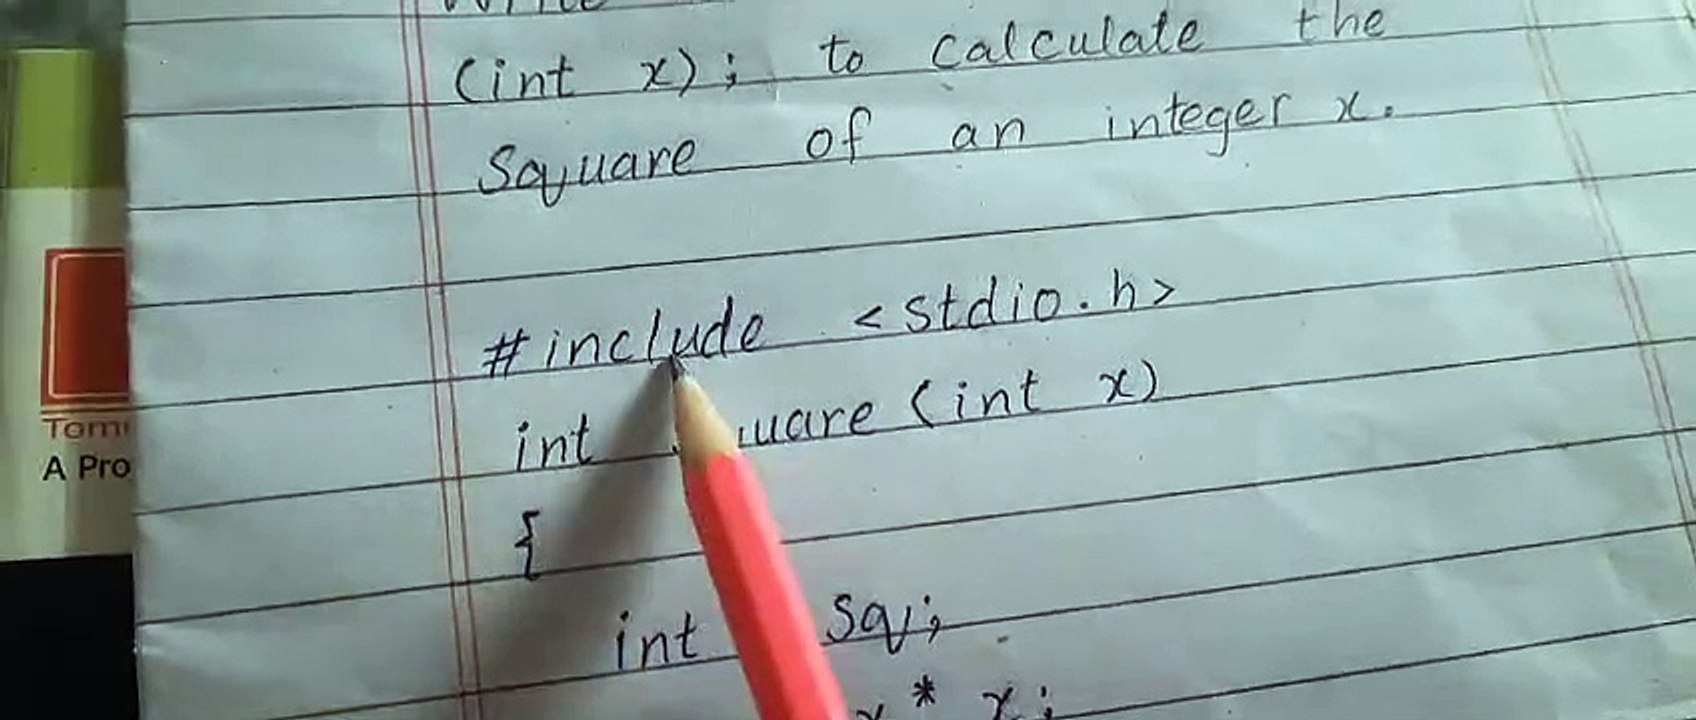 (int x); to calculate the
Square of an integer x.
#include <stdio.h>
int square (int x)
{
int sq;
x * x;
Tom
A Pro